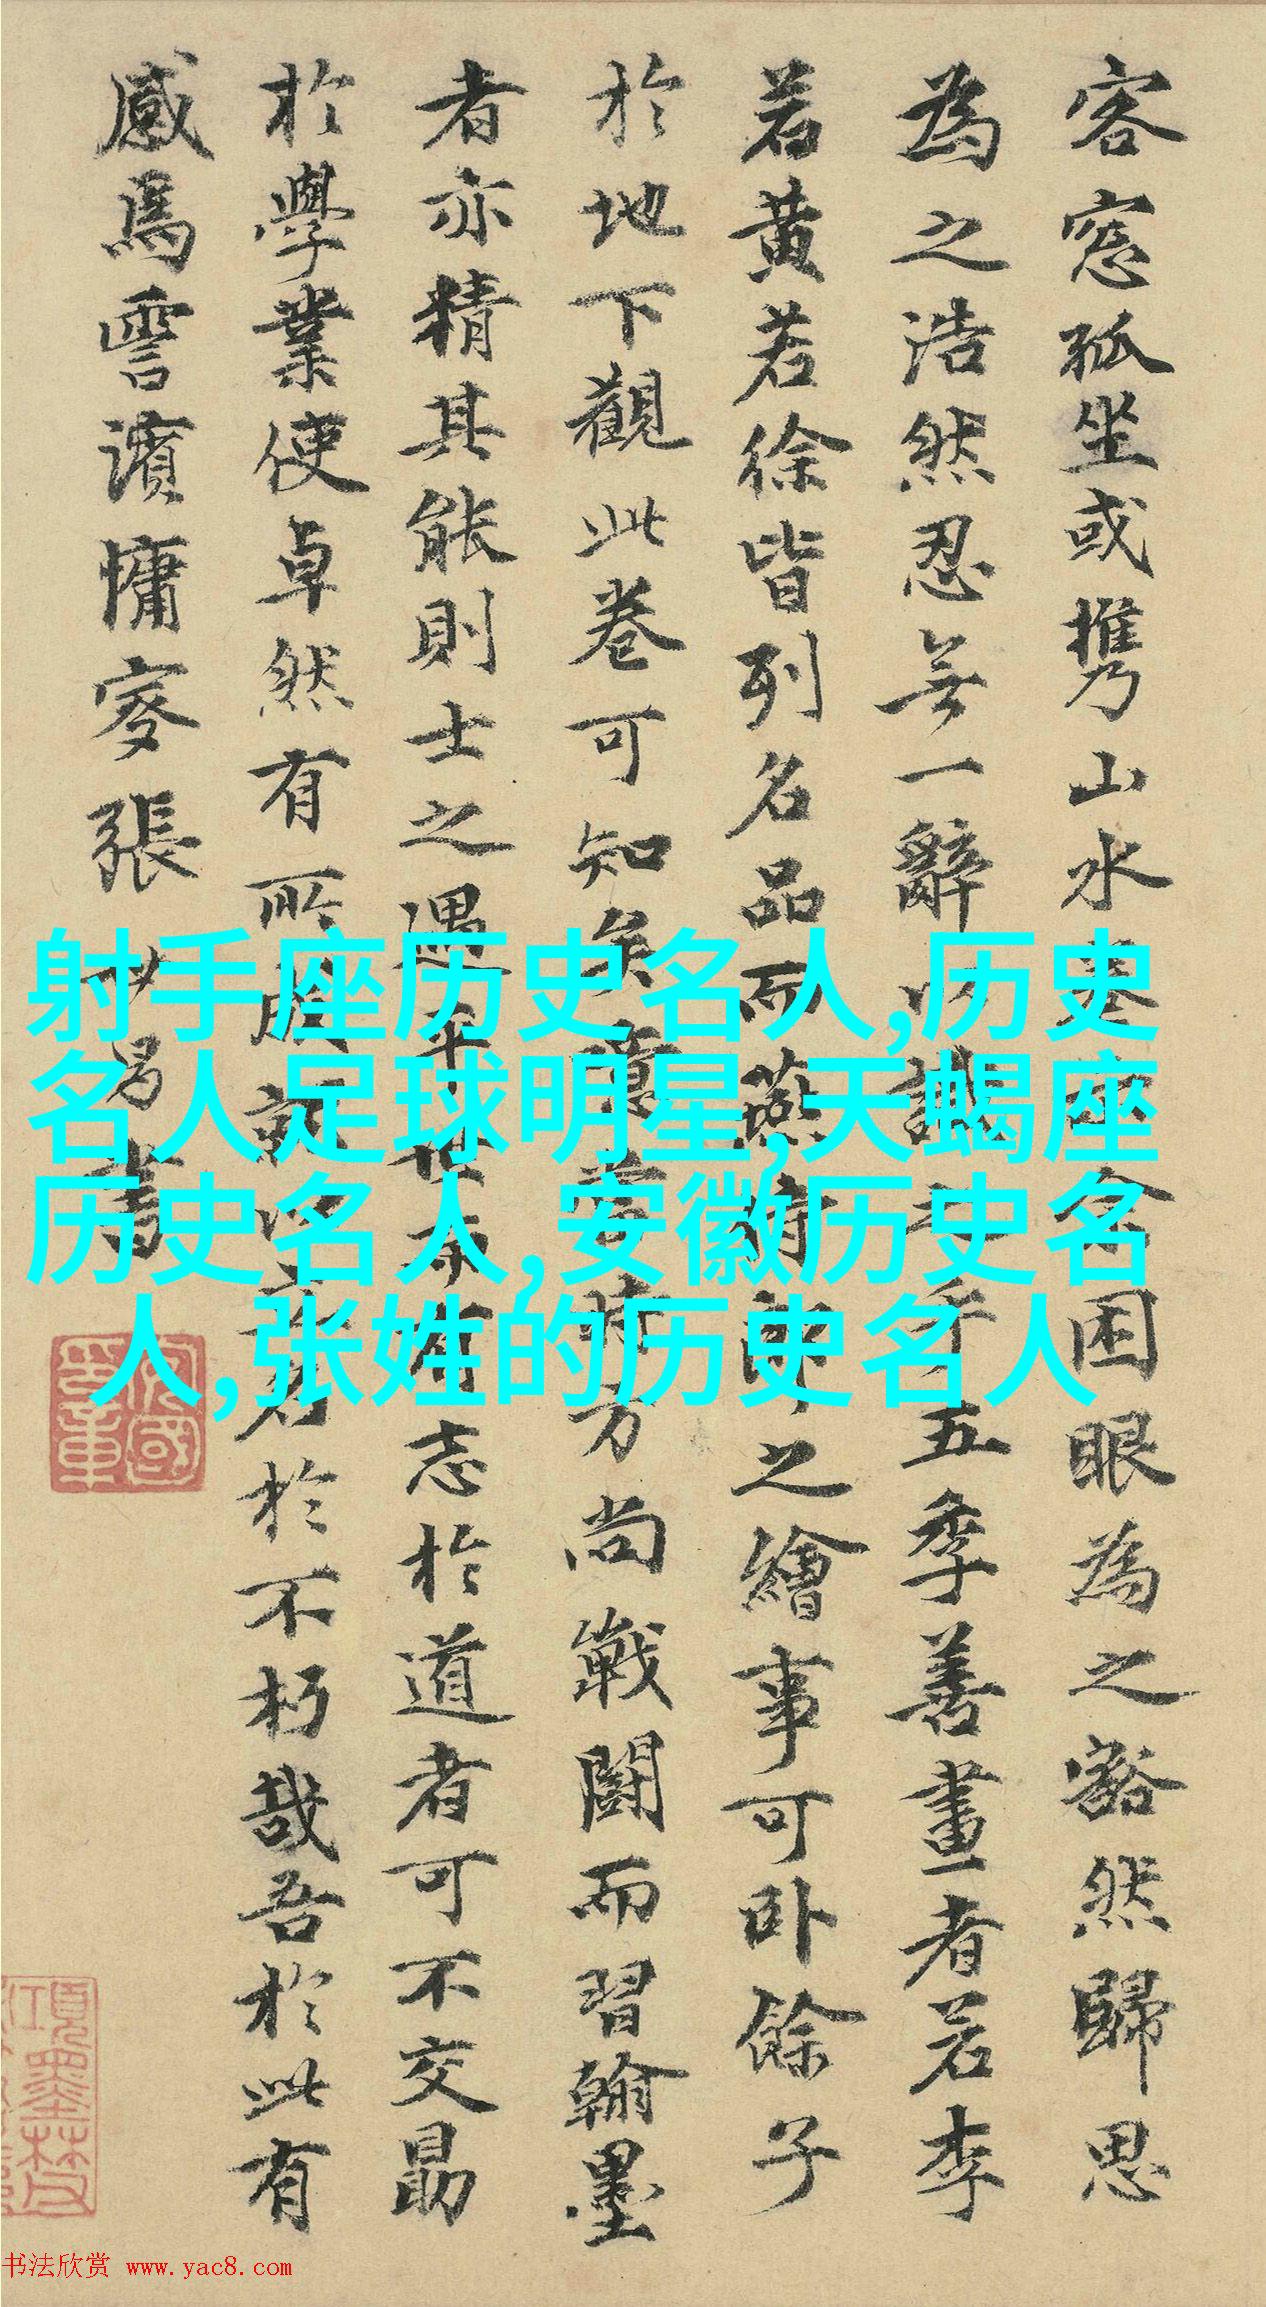 客窓孤坐或携山水困眼為之豁然歸思
為之浩然忍無一辭乎五季善畫者若李
若黄若徐皆列名品而燕之繪事可卧餘子
於地下觀此卷可知矣時方尚戰鬪而習翰墨
者亦精其能則士之遇有志於道者可不交勗
於學業使卓然有所於不朽哉吾於此有
感焉霅濱慵叟張書
射手座历史名人,历史
名人足球明星,天蝎座
历史名人,安徽历史名
人,张姓的历史名人
书法欣赏 www.yac8.com